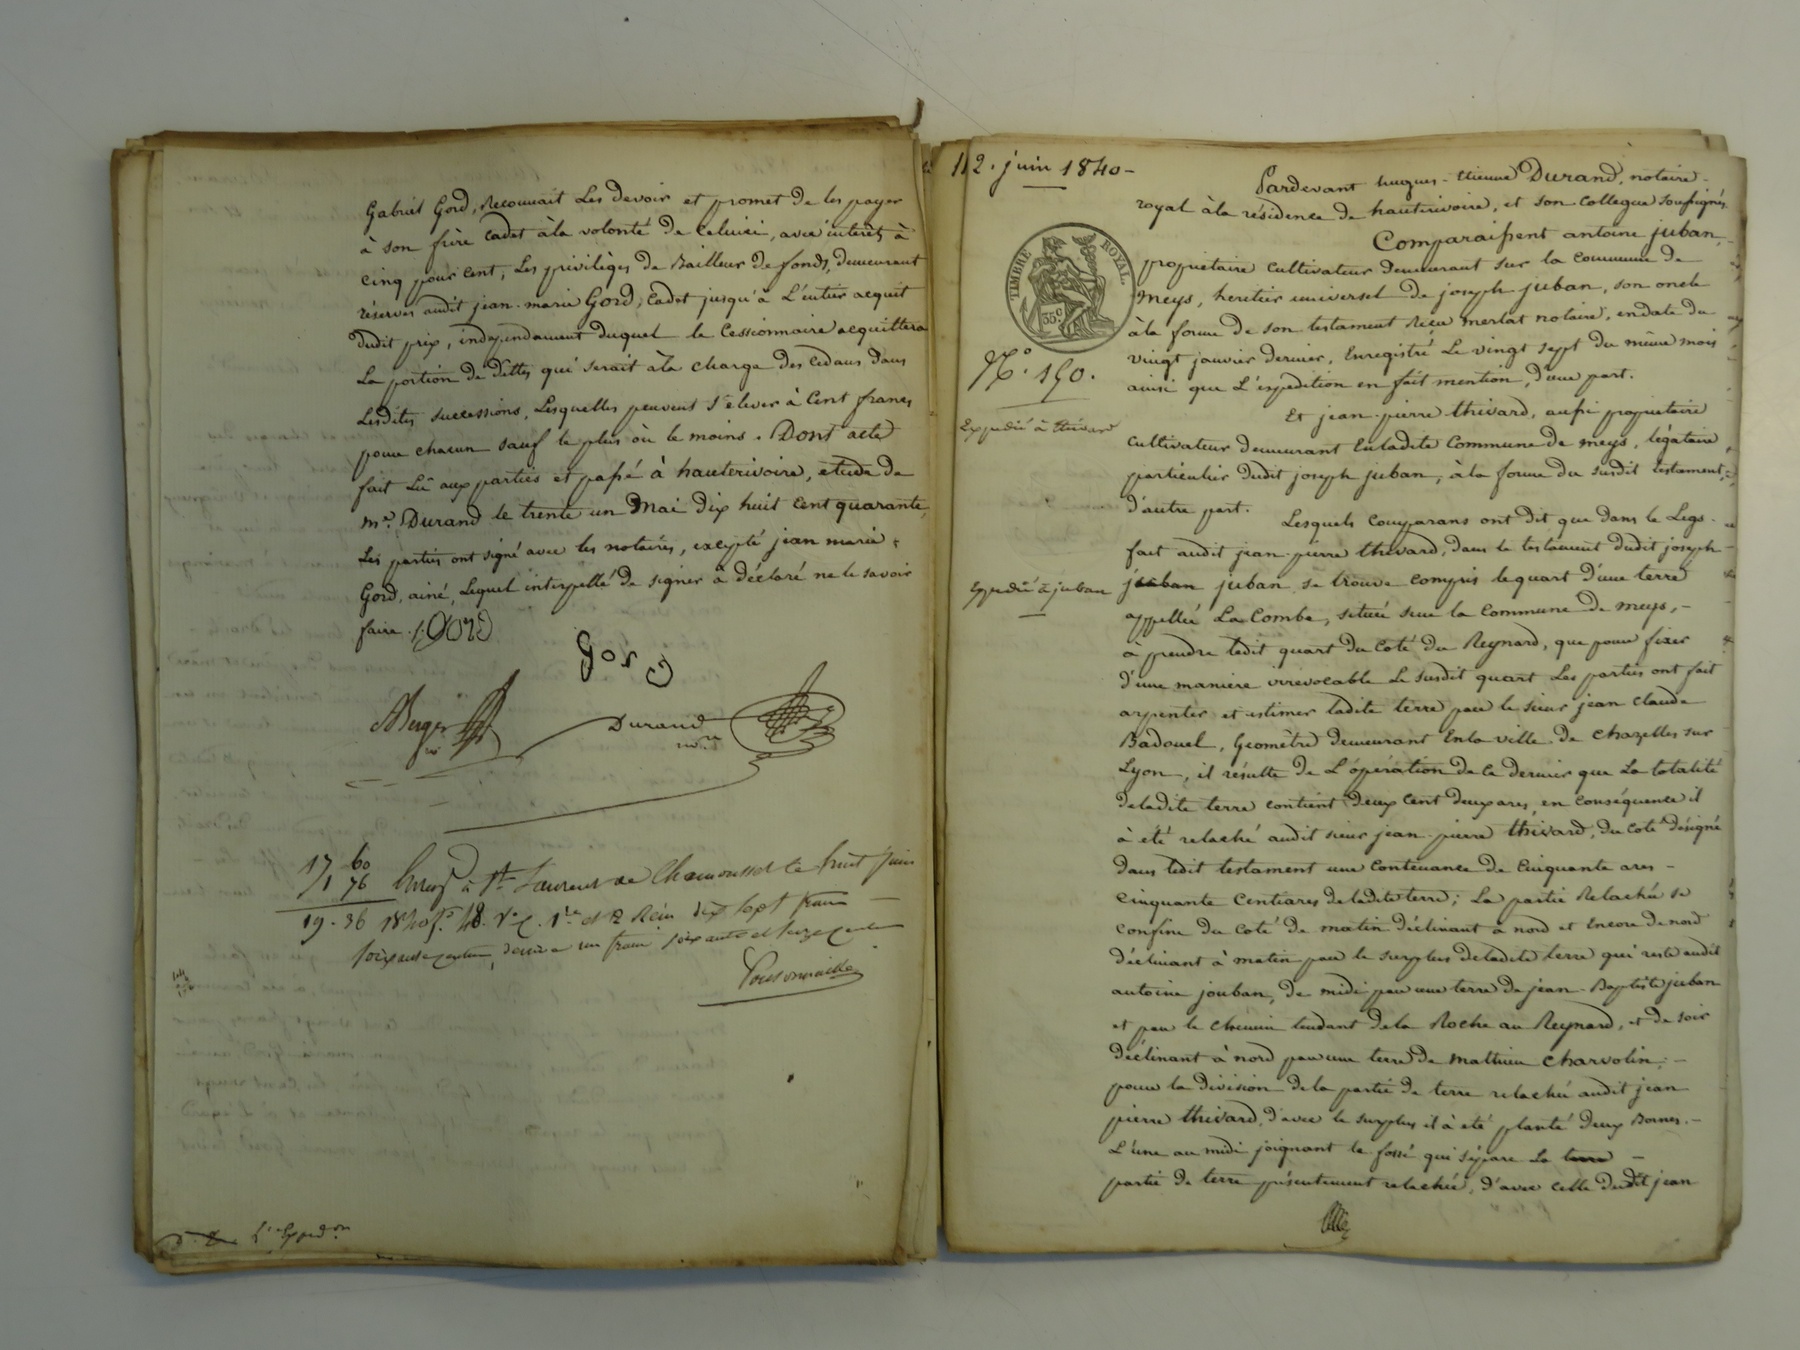 Gabriel Gord, Reconnait Les devoir et promet de les payer
à son frère cadet àla volonté de Celuici, avec interets à
cinq pour cent, Les privilèges de Bailleur de fonds, demeurant
réservés audit jean-marie Gord, cadet jusqu'à L'entier acquit
Dudit prix, independament duquel le Cessionnaire acquittera
La portion de dettes qui serait àla charge des cedans dans
Lesdites successions, Lesquelles peuvent s'elever à Cent francs
pour chacun sauf le plus où le moins. Dont acte
fait Lû aux parties et passé à hauterivoire, etude de
me. Durand le trente un Mai dix huit cent quarante,
Les parties ont signé avec les notaires, excepté jean marie
Gord, ainé, Lequel interpellé de signer à déclaré ne le savoir
faire ./. GORD
Gord
Berger
Durand
nore
17 60
1 76
19 . 36
Enregé à St. Laurent de Chamousset le huit Juin
1840 fo. 48. Vo C. 1re et 2 Reçu dix sept francs
soixante centimes, decime un franc soixante et seize centimes
Ponsonnaille
L'Expedon
12. juin 1840-
Pardevant hugues-etienne Durand, notaire
royal àla résidence de hauterivoire, et son collegue soussignés
Comparaissent antoine juban,
propriétaire cultivateur demeurant sur la commune de
meys, heritier universel de joseph juban, son oncle
àla forme de son testament Reçu merlat notaire, endate du
vingt janvier dernier, Enregistré Le vingt sept du même mois
ainsi que L'expedition en fait mention, d'une part.
TIMBRE ROYAL
35c
No. 150.
Expedié à thivard
Et jean-pierre thivard, aussi propriétaire
cultivateur demeurant Enladite Commune de meys, légataire
particulier dudit joseph juban, àla forme du susdit testament,
d'autre part.
Lesquels comparans ont dit que dans le Legs
fait audit jean-pierre thivard, dans le testament dudit joseph
Expedié à juban
jouban juban, se trouve compris lequart d'une terre
appellée La Combe, située sur la Commune de meys,-
à prendre ledit quart du Coté du Reynard, que pour fixer
d'une maniere irrevocable Le susdit quart Les parties ont fait
arpenter et estimer ladite terre par le sieur jean claude
Badouel, Geomètre demeurant Enla ville de chazelles sur
Lyon, il résulte de L'opération de Ce dernier que La totalité
deladite terre contient deux cent deux ares, en conséquence il
à été relaché audit sieur jean-pierre thivard, du coté désigné
dans ledit testament une contenance de Cinquante ares-
cinquante Centiares deladite terre; La partie Relachée se
confine du coté de matin déclinant à nord et Encore de nord
déclinant à matin par le surplus deladite terre qui reste audit
antoine jouban, de midi par une terre de jean-Baptiste juban
et par le chemin tendant dela Roche au Reynard, et de soir
déclinant à nord par une terre de mathieu charvolin;-
pour la division dela partie de terre relachée audit jean
pierre thivard, d'avec le surplus il à eté planté deux Bornes.-
L'une au midi joignant le fossé qui sépare La terre-
partie de terre présentement relachée, d'avec celle dudit jean